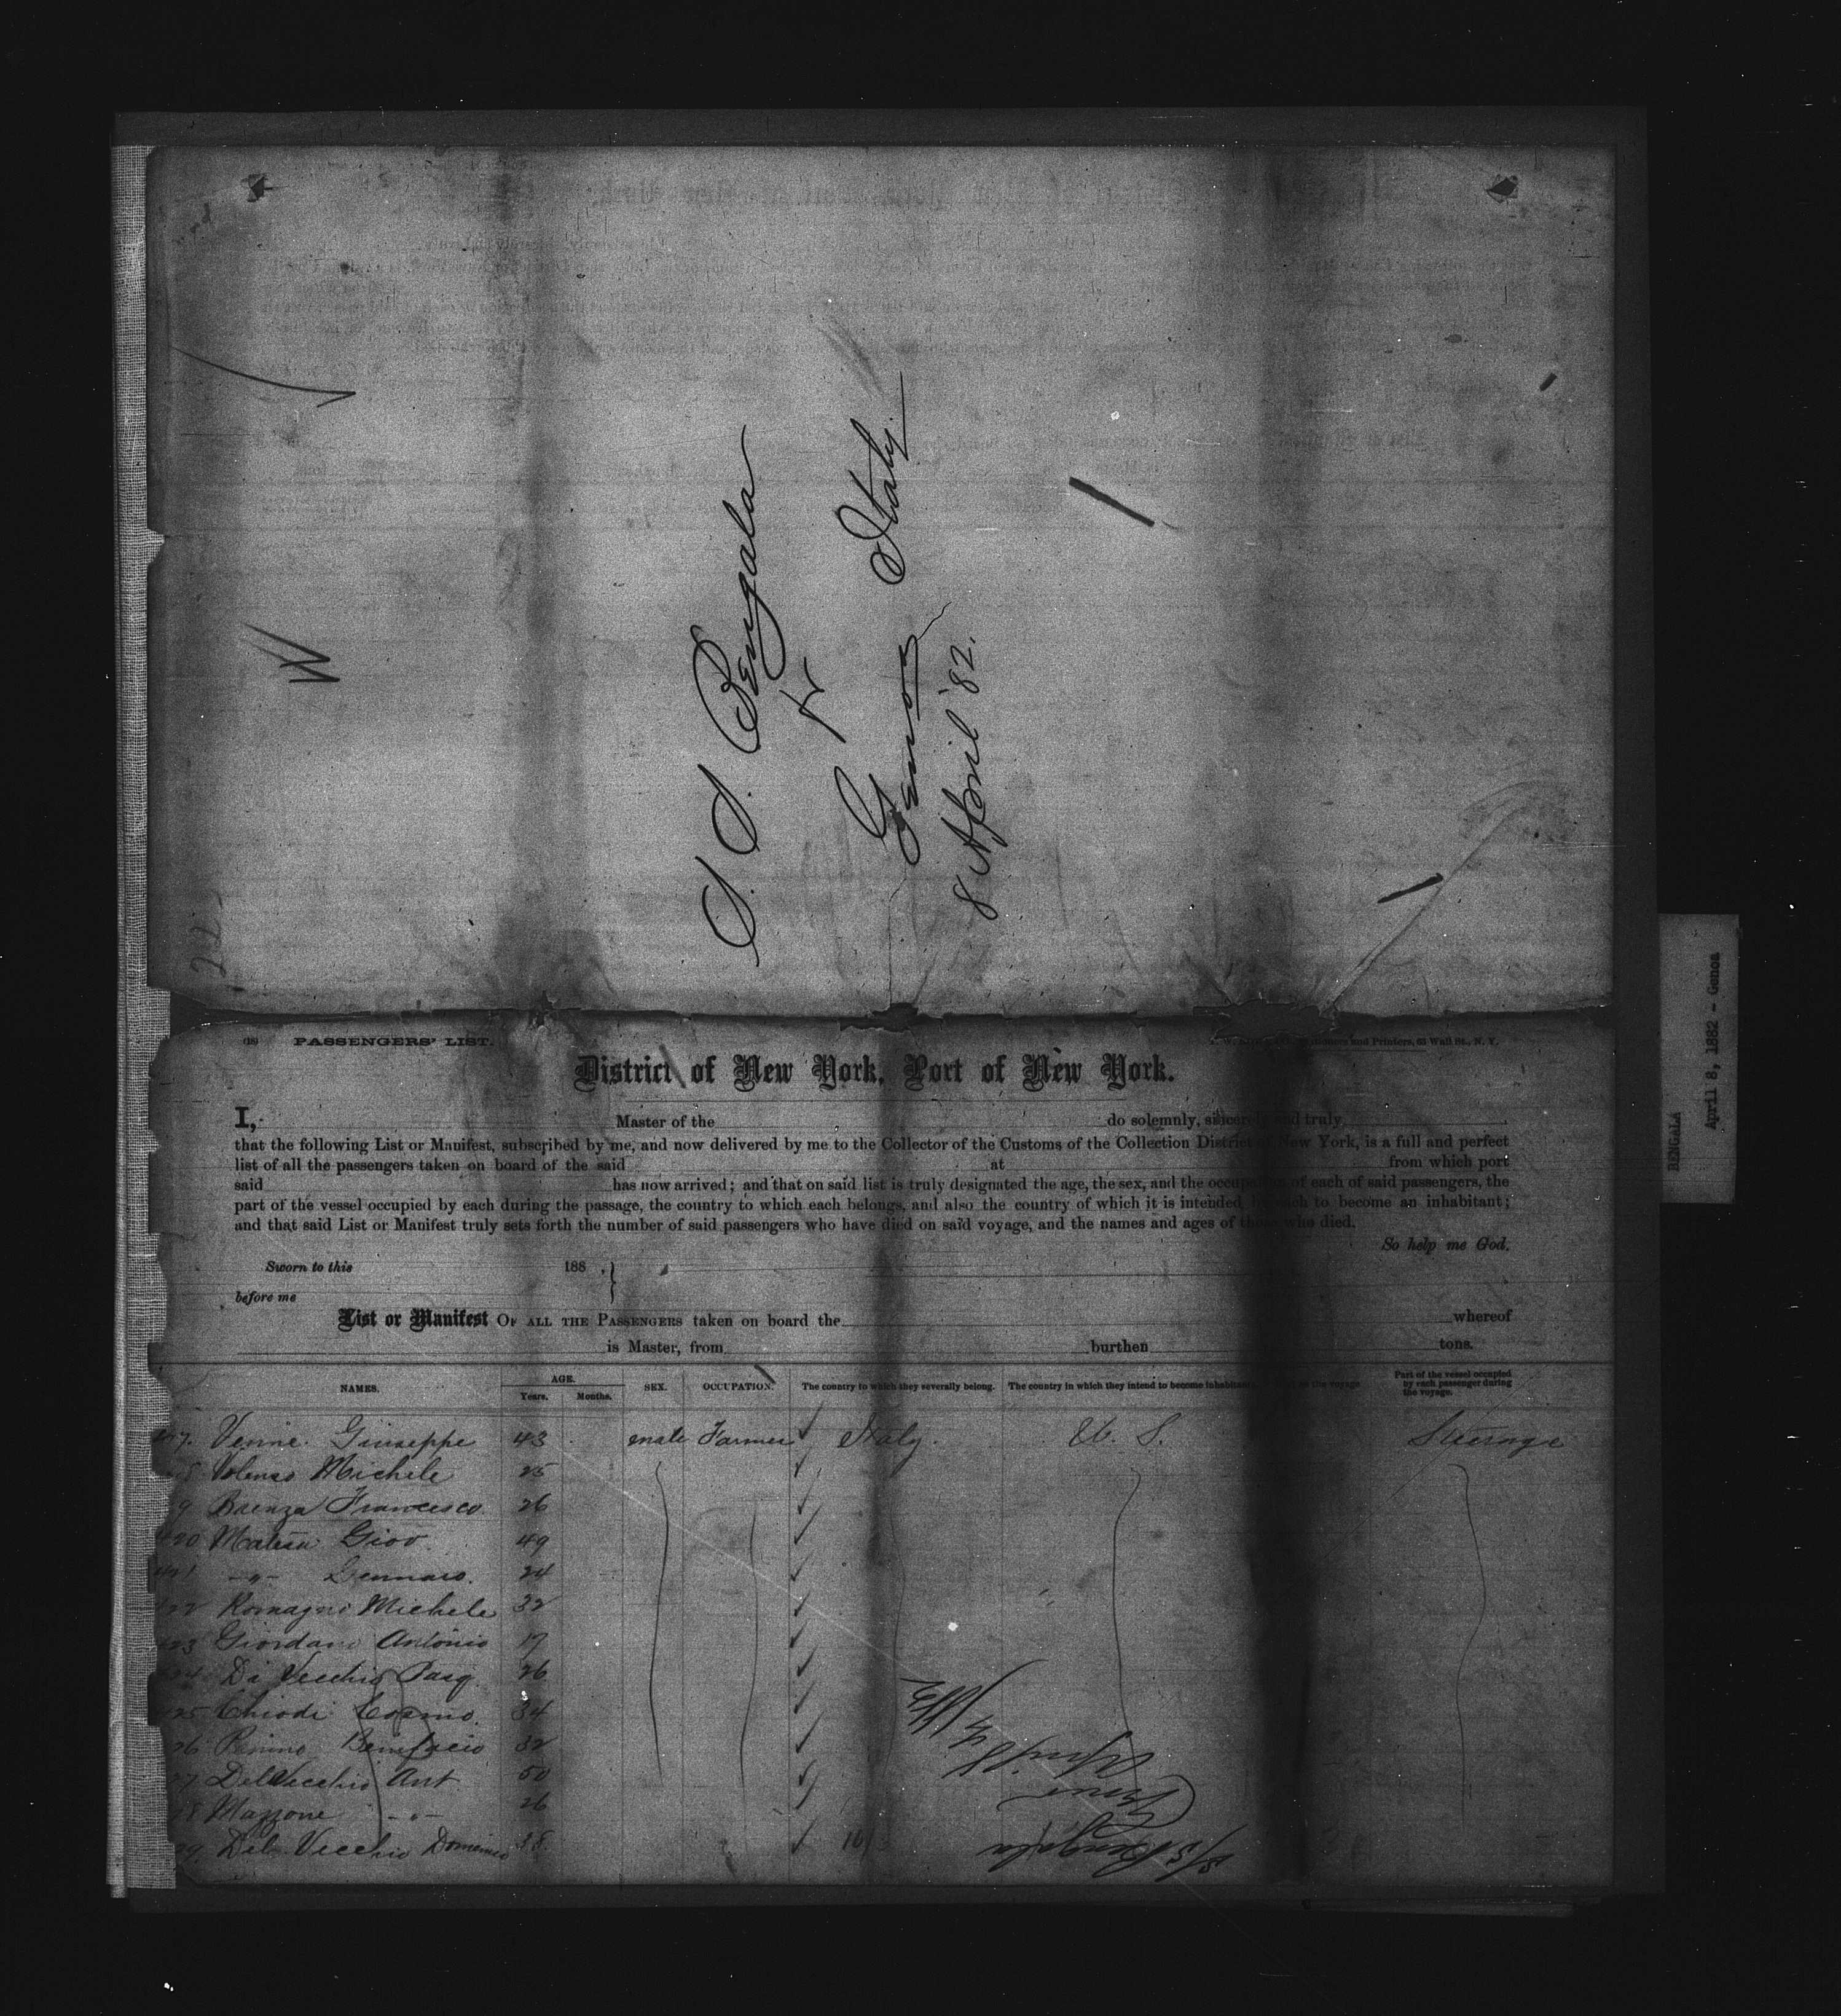 S. S. Bengala
fr
Genoa Italy.
8 April '82.
W
BENGALA
April 8, 1882 - Genoa
(18) PASSENGERS' LIST.
and Printers, 63 Wall St., N. Y.
District of New York, Port of New York.
I, Master of the do solemnly, sincerely and truly
that the following List or Manifest, subscribed by me, and now delivered by me to the Collector of the Customs of the Collection District of New York, is a full and perfect
list of all the passengers taken on board of the said at from which port
said has now arrived; and that on said list is truly designated the age, the sex, and the occupation of each of said passengers, the
part of the vessel occupied by each during the passage, the country to which each belongs, and also the country of which it is intended by each to become an inhabitant;
and that said List or Manifest truly sets forth the number of said passengers who have died on said voyage, and the names and ages of those who died.
So help me God.
Sworn to this 188 .
before me
List or Manifest OF ALL THE PASSENGERS taken on board the whereof
is Master, from burthen tons.
NAMES. AGE. Years. Months. SEX. OCCUPATION. The country to which they severally belong. The country in which they intend to become inhabitants. the voyage Part of the vessel occupied by each passenger during the voyage.
Giuseppe 43 male Farmer Italy. U. S. Steerage
Michele 25
Francesco 26
Giov. 49
-"- Gennaro. 24
Romagni Michele 32
Giordano Antonio 17
Di Vecchio Pasq. 26
Chiodi Cosmo. 34
Bonifacio 32
Del Vecchio Ant. 50
Mazzone -"- 26
Del Vecchio Domenico 38.
S/S Bengala
Genoa